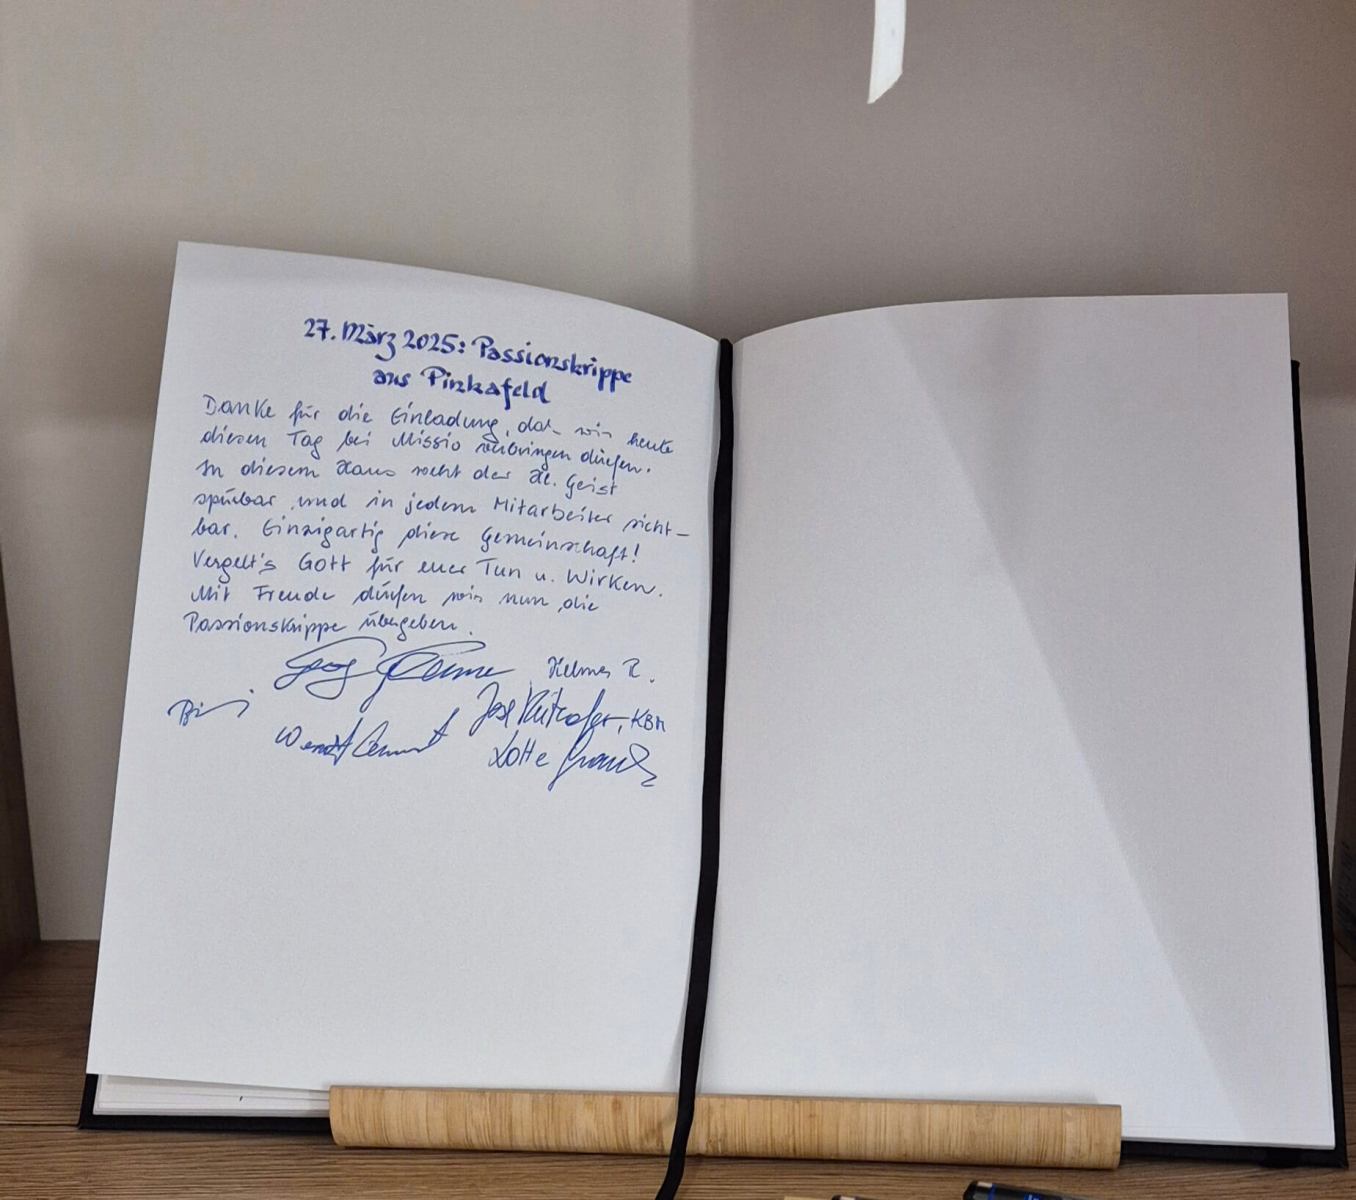 27. März 2025: Passionskrippe
aus Pinkafeld
Danke für die Einladung, daß wir heute
diesen Tag bei Missio verbringen dürfen.
In diesem Haus weht der Hl. Geist
spürbar und in jedem Mitarbeiter sicht-
bar. Einzigartig diese Gemeinschaft!
Vergelt's Gott für euer Tun u. Wirken.
Mit Freude dürfen wir nun die
Passionskrippe übergeben.
R.
KBM
Lotte